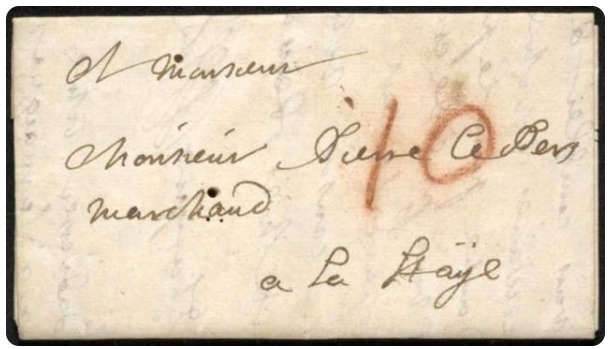 A Monsieur
Monsieur Pierre
marchand
a la Haÿe
10